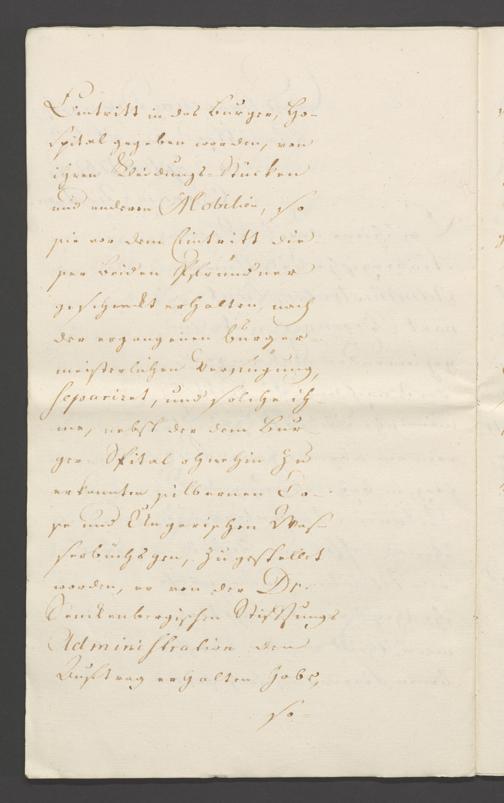 Eintritt in das Burger, Ho-
spital gegeben worden, von
ihren Kleidungs-Stücken
und anderen Mobilien, so
sie vor dem Eintritt die
ser beiden Pfründner
geschenkt erhalten, nach
der ergangenen Burger
meisterlichen Verfügung,
separiret, und solche ih
me, nebst der dem Bur
ger Spital ohnehin zu
erkannten silbernen Do-
se und Ungerischen Was-
serbüchsgen, zugestellet
worden, er von der Dr.
Senckenbergischen Stifftungs
Administration den
Auftrag erhalten habe,
so-